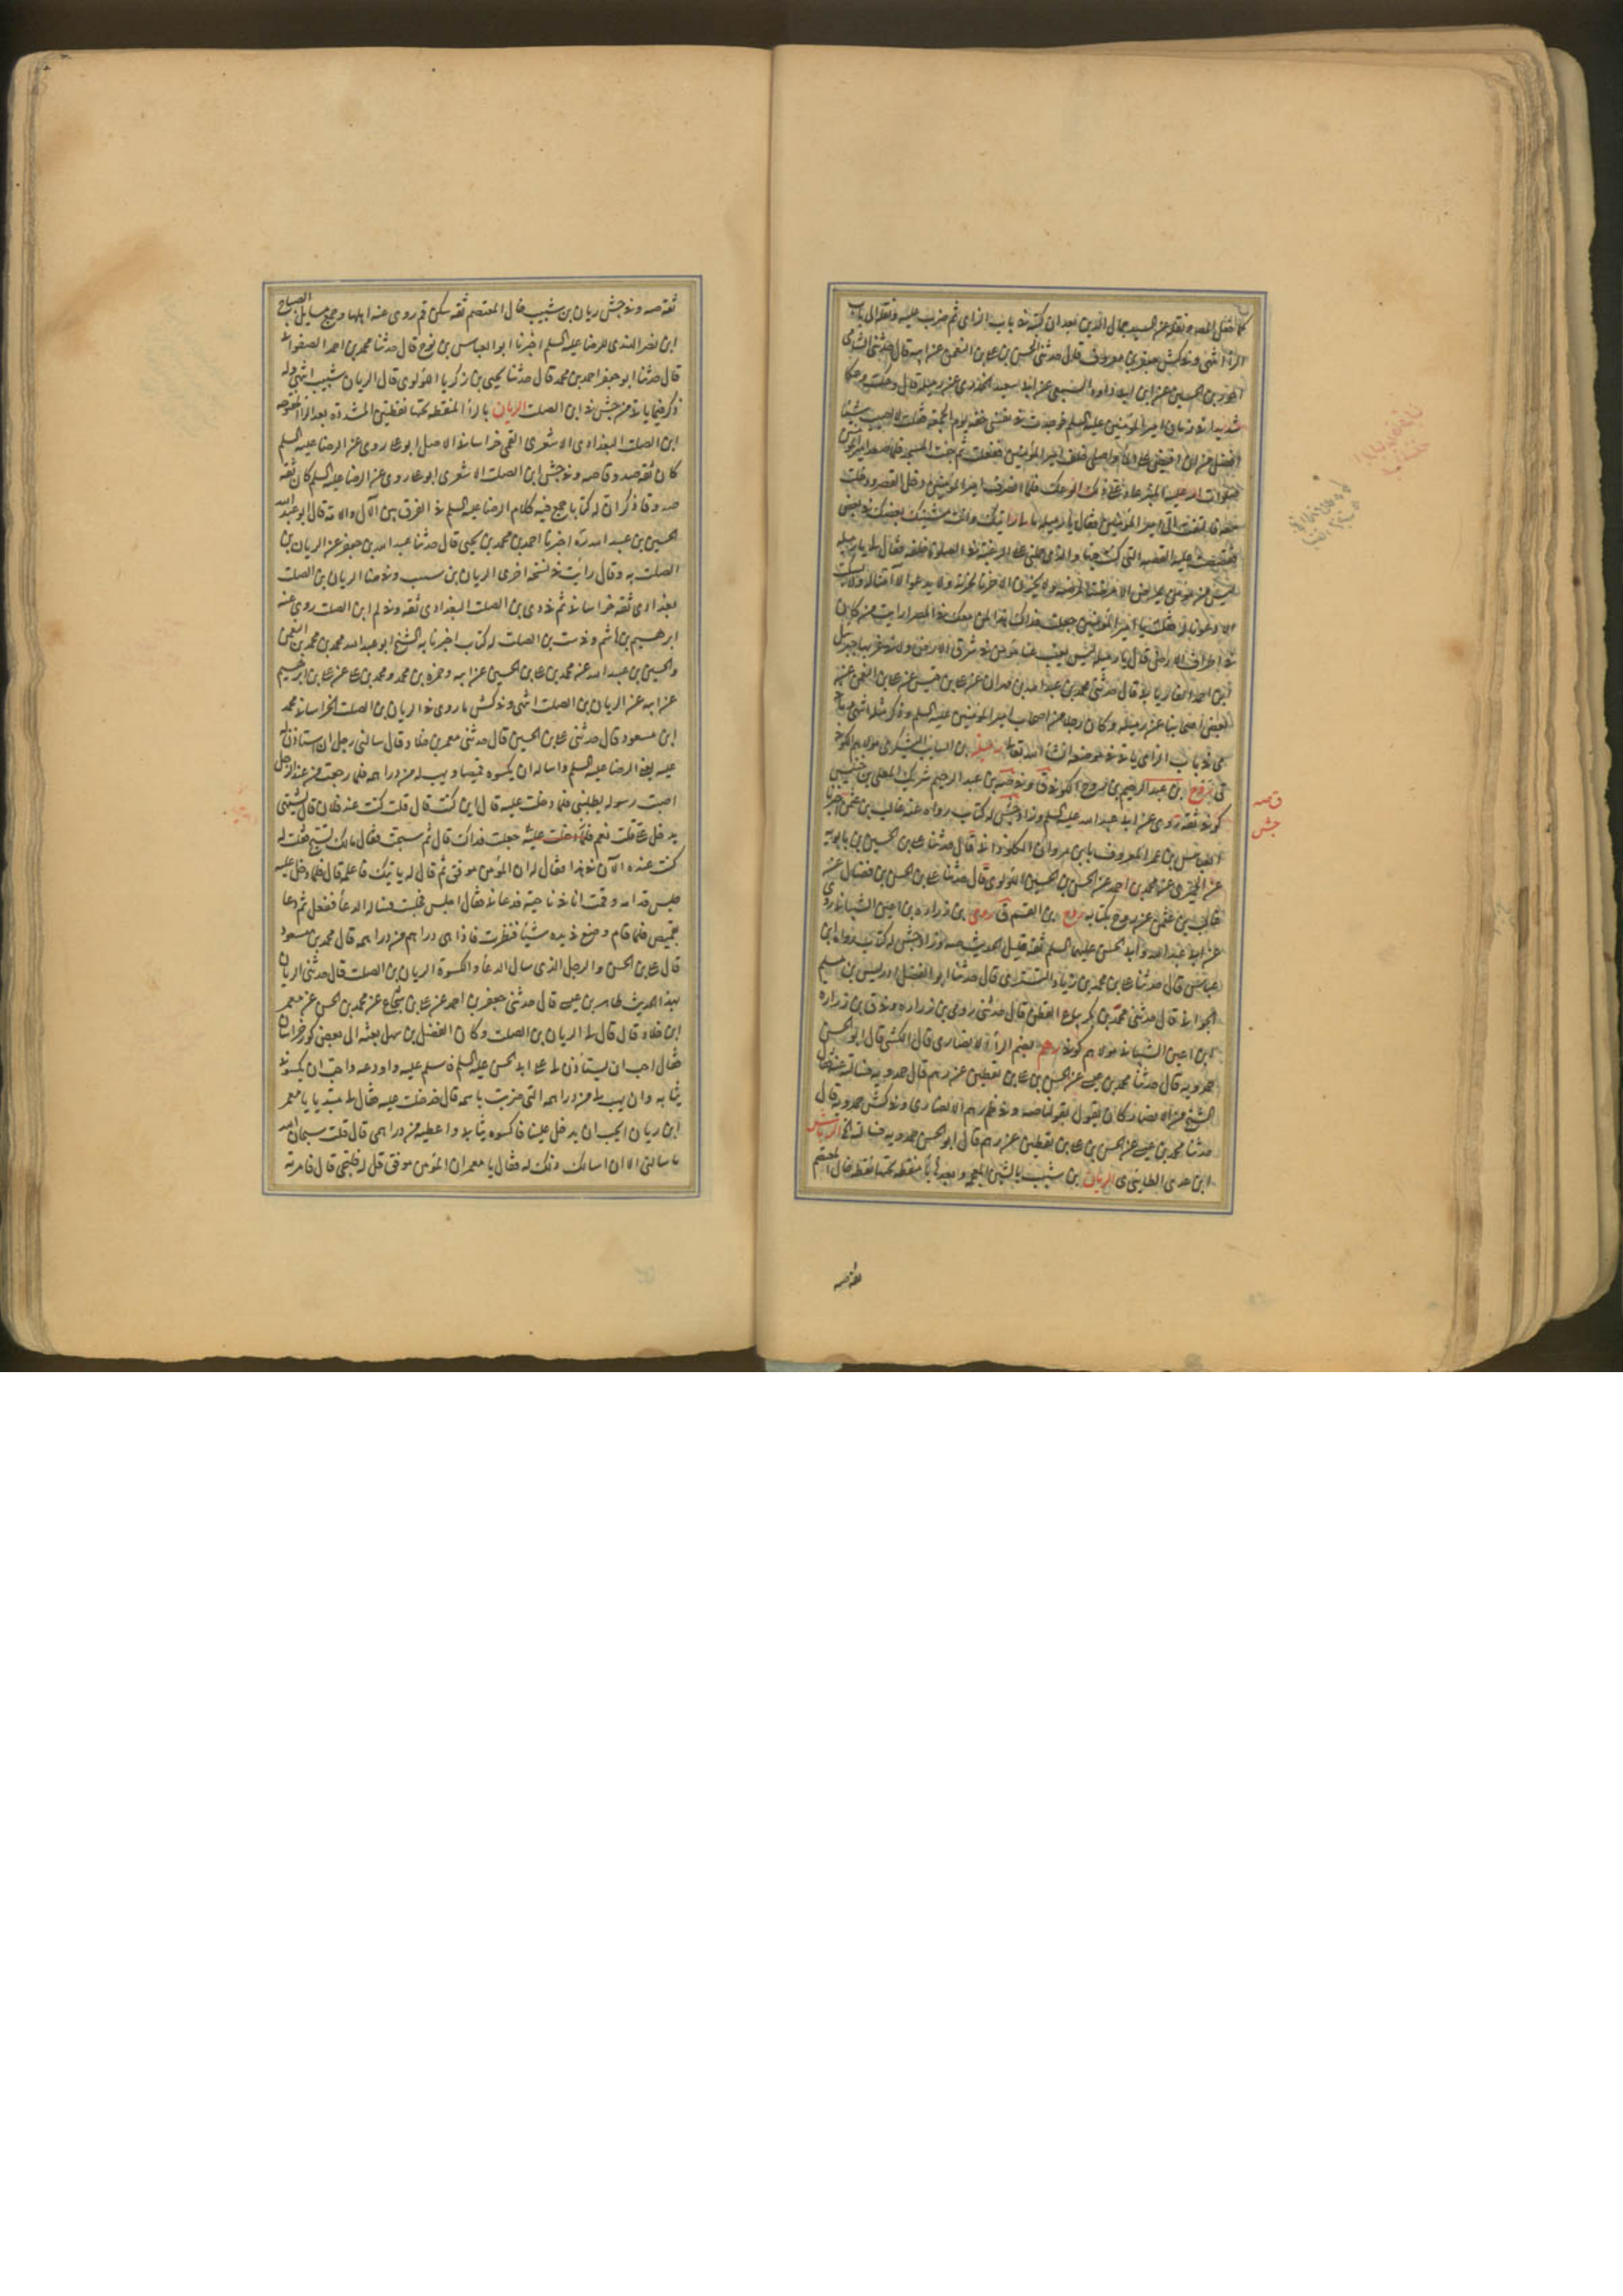 كما
الراء انتهى وفي كش جعفر بن معروف قال حدثني الحسن بن علي بن النعمن عن ابيه قال حدثني الشامي
ابي الجارود السبيعي عن ابي سعيد الخدري عن رميله قال وعكت وعكا
شديدا في زمان امير المؤمنين عليه السلام فوجدت من نفسي خفة يوم الجمعة فقلت لا اصيب شيئا
افضل من ان افيض علي الماء واصلي خلف امير المؤمنين ففعلت ثم جئت المسجد فلما صعد امير المؤمنين
المنبر عاد علي ذلك الوعك فلما انصرف امير المؤمنين دخل القصر ودخلت
معه فالتفت الي امير المؤمنين فقال يا رميله ما لي رايتك وانت متشبك بعضك في بعض
فقصصت عليه القصة التي كنت فيها والذي حملني علي الرغبة في الصلوة خلفه فقال لي يا رميله
ليس من مؤمن يمرض الا مرضنا لمرضه ولا يحزن الا حزنا لحزنه ولا يدعو الا امنا له ولا يسكت
الا دعونا له فقلت يا امير المؤمنين جعلت فداك هذا لمن معك في المصر ارايت من كان
في اطراف الارض قال يا رميله ليس يغيب عنا مؤمن في شرق الارض ولا في غربها جبريل
ابن احمد الفاريابي قال حدثني محمد بن عبد الله بن مهران عن علي بن قيس عن علي بن النعمن عن
بعض اصحابنا عن رميله وكان رجلا من اصحاب امير المؤمنين عليه السلام وذكر مثله انتهى
في باب الزاي ياتي في موضعه انشا الله تعالى
ق روح بن عبد الرحيم بن روح الكوفي ق وفي صه بن عبد الرحيم شريك المعلى بن خنيس
كوفي ثقة روى عن ابي عبد الله عليه السلام وزاد جش له كتاب رواه عنه غالب بن عثمن اخبرنا
العباس بن عمر المعروف بابن مروان الكلوذاني قال حدثنا علي بن الحسين بن بابويه
عن الحميري عن محمد بن احمد عن الحسن بن الحسين اللؤلوي قال حدثنا علي بن الحسن بن فضال عن
غالب بن عثمن عن روح بكتابه روح بن القسم ق رومي بن زراره بن اعين الشيباني روى
عن ابي عبد الله وابي الحسن عليهما السلام ثقة قليل الحديث صه وزاد جش له كتاب رواه ابن
عياش قال حدثنا علي بن محمد بن زياد التستري قال حدثنا ابو الفضل ادريس بن مسلم
الجواني قال حدثني محمد بن بكر بياع القطن قال حدثني رومي بن زراره وفي ق بن زراره
ابن اعين الشيباني مولاهم كوفي رهم بضم الراء الانصاري قال الكشي قال ابو الحسن
حمدويه قال حدثنا محمد بن عيسى عن الحسن بن علي بن يقطين عن رهم قال حمدويه فسالته عنه فقال
الشيخ من الانصار كان يقول بقولنا صه وفي ظم رهم الانصاري وفي كش حمدويه قال
حدثنا محمد بن عيسى عن الحسن بن علي بن يقطين عن رهم قال ابو الحسن حمدويه
ابن عدي الطائي ى الريان بن شبيب بالشين المعجمة وبعدها ياء منقطة تحتها نقطة خال المعتصم
ق صه
جش
ثقة صه
ثقة صه وفي جش ريان بن شبيب خال المعتصم ثقة سكن قم روى عنه اهلها وجمع مسايل الصباح
ابن نصر الهندي للرضا عليه السلم اخبرنا ابو العباس بن نوح قال حدثنا محمد بن احمد الصفواني
قال حدثنا ابو جعفر احمد بن محمد قال حدثنا يحيى بن زكريا اللؤلوي قال الريان بن شبيب انتهى وله
ذكر فيما ياتي من جش في ابن الصلت الريان بالراء المنقطه تحتها نقطتين المشدده بعد الراء المفتوحه
ابن الصلت البغدادي الاشعري القمي خراساني الاصل ابو علي روى عن الرضا عليه السلم
كان ثقه صدوقا صه وفي جش ابن الصلت الاشعري ابو علي روى عن الرضا عليه السلم كان ثقه
صدوقا ذكر ان له كتابا جمع فيه كلام الرضا عليه السلم في الفرق بين الآل والامة قال ابو عبد الله
الحسين بن عبيد الله ره اخبرنا احمد بن محمد بن يحيى قال حدثنا عبد الله بن جعفر عن الريان بن
الصلت به وقال رايت في نسخه اخرى الريان بن شبيب وفي ضا الريان بن الصلت
بغدادي ثقه خراساني ثم في دي بن الصلت البغدادي ثقه وفي لم ابن الصلت روى عنه
ابرهيم بن هاشم وفي ست بن الصلت له كتاب اخبرنا به الشيخ ابو عبد الله محمد بن محمد بن النعمن
والحسين بن عبيد الله عن محمد بن علي بن الحسين عن ابيه وحمزه بن محمد ومحمد بن علي عن علي بن ابرهيم
عن ابيه عن الريان بن الصلت انتهى وفي كش ما روى في الريان بن الصلت الخراساني محمد
ابن مسعود قال حدثني علي بن الحسين قال حدثني معمر بن خلاد قال سالني رجل ان استاذن له
عليه يعني الرضا عليه السلم واساله ان يكسوه قميصا ويهب له من دراهمه فلما رجعت من عند الرجل
اصبت رسوله يطلبني فلما دخلت عليه قال اين كنت قال قلت كنت عند فلان قال يشتهي
يدخل علي قلت نعم فلما دخلت عليه جعلت فداك قال ثم سبحت فقال مالك تسبح فقلت له
كنت عنده الآن في هذا فقال ان المؤمن موفق ثم قال له ياتيك فاعلمه قال فلما دخل عليه
جلس قدامه وقمت انا في ناحية فدعاني فقال اجلس فجلست فساله الدعاء ففعل ثم دعا
بقميص فلما قام وضع في يده شيئا فنظرت فاذا هي دراهم من دراهمه قال محمد بن مسعود
قال علي بن الحسن والرجل الذي سال الدعاء والكسوة الريان بن الصلت قال حدثني الريان
بهذا الحديث طاهر بن عيسى قال حدثني جعفر بن احمد عن علي بن شجاع عن محمد بن الحسن عن معمر
ابن خلاد قال قال لي الريان بن الصلت وكان الفضل بن سهل بعثه الى بعض كور خراسان
فقال احب ان تستاذن لي على ابي الحسن عليه السلم فاسلم عليه واودعه واحب ان يكسوني
ثيابه وان يهب لي من دراهمه التي ضربت باسمه قال فدخلت عليه فقال لي مبتديا يا معمر
اين ريان ايحب ان يدخل علينا فاكسوه ثيابي واعطيه من دراهمي قال قلت سبحان الله
ما سالني الا ان اسالك ذلك له فقال يا معمر ان المؤمن موفق قل له فليجئ قال فامرته